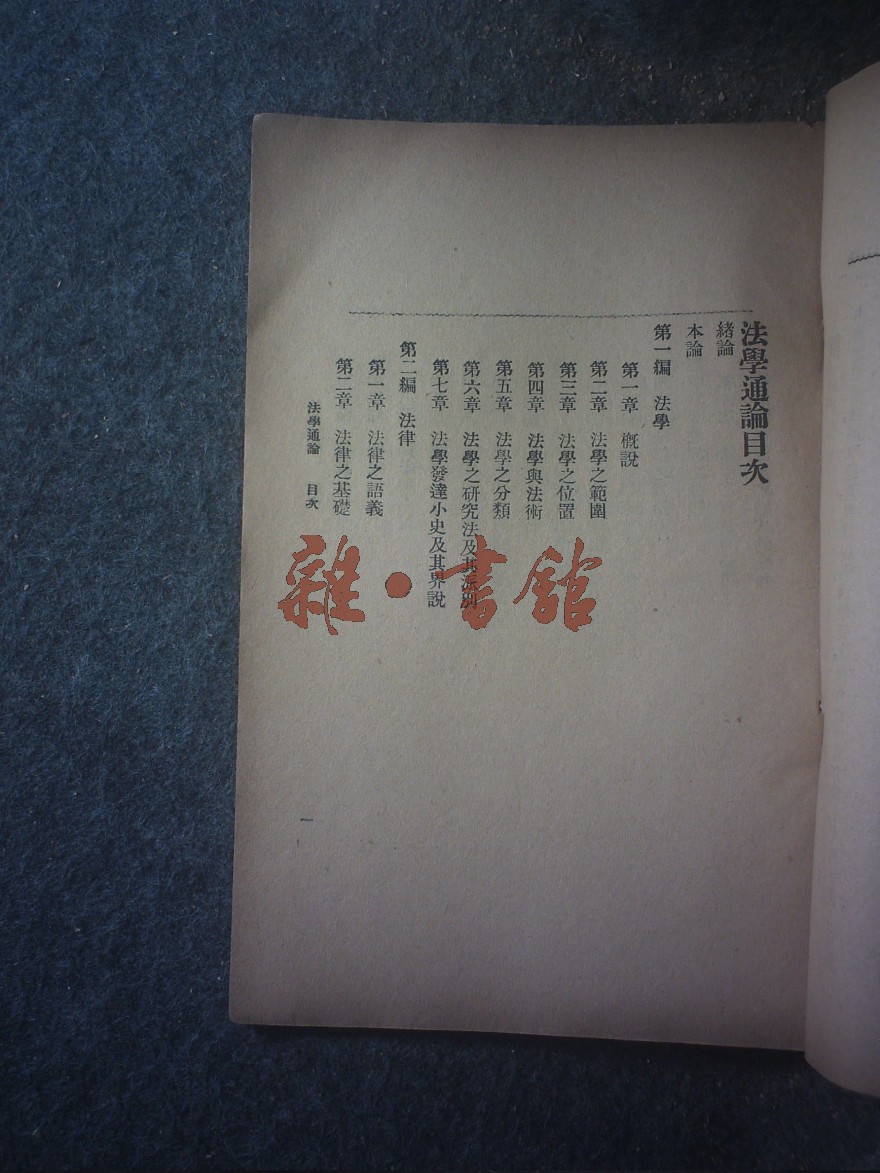 法學通論目次
緒論
本論
第一編　法學
第一章　槪說
第二章　法學之範圍
第三章　法學之位置
第四章　法學與法術
第五章　法學之分類
第六章　法學之研究法及其派別
第七章　法學發達小史及其界說
第二編　法律
第一章　法律之語義
第二章　法律之基礎
法學通論　目次
一
雜·書館